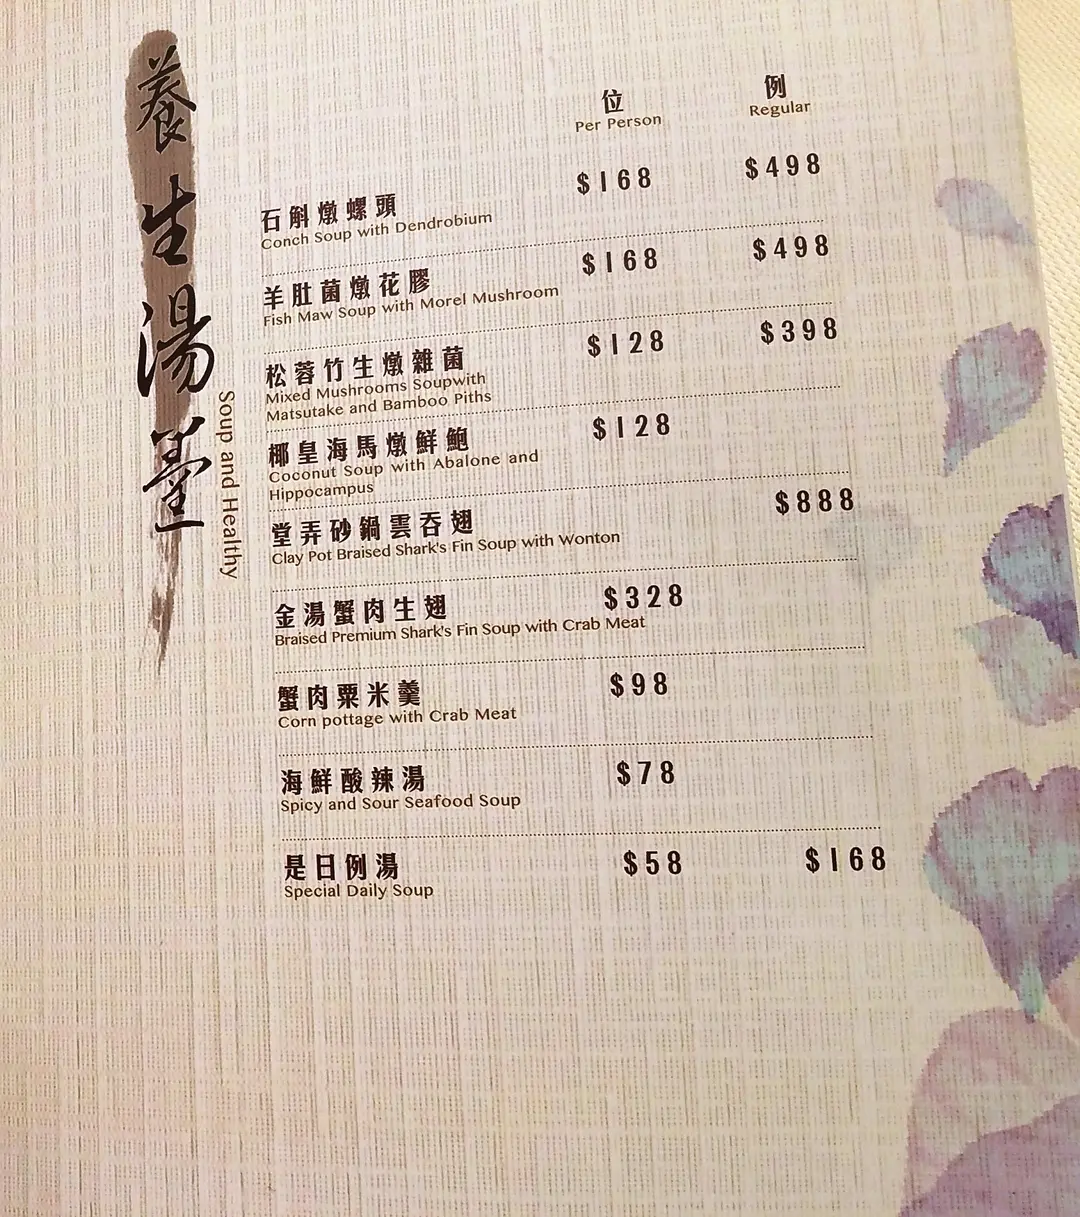 養生湯羹
Soup and Healthy
位 例
Per Person Regular
石斛燉螺頭 $168 $498
Conch Soup with Dendrobium
羊肚菌燉花膠 $168 $498
Fish Maw Soup with Morel Mushroom
松蓉竹生燉雜菌 $128 $398
Mixed Mushrooms Soupwith
Matsutake and Bamboo Piths
椰皇海馬燉鮮鮑 $128
Coconut Soup with Abalone and
Hippocampus
堂弄砂鍋雲吞翅 $888
Clay Pot Braised Shark's Fin Soup with Wonton
金湯蟹肉生翅 $328
Braised Premium Shark's Fin Soup with Crab Meat
蟹肉粟米羹 $98
Corn pottage with Crab Meat
海鮮酸辣湯 $78
Spicy and Sour Seafood Soup
是日例湯 $58 $168
Special Daily Soup